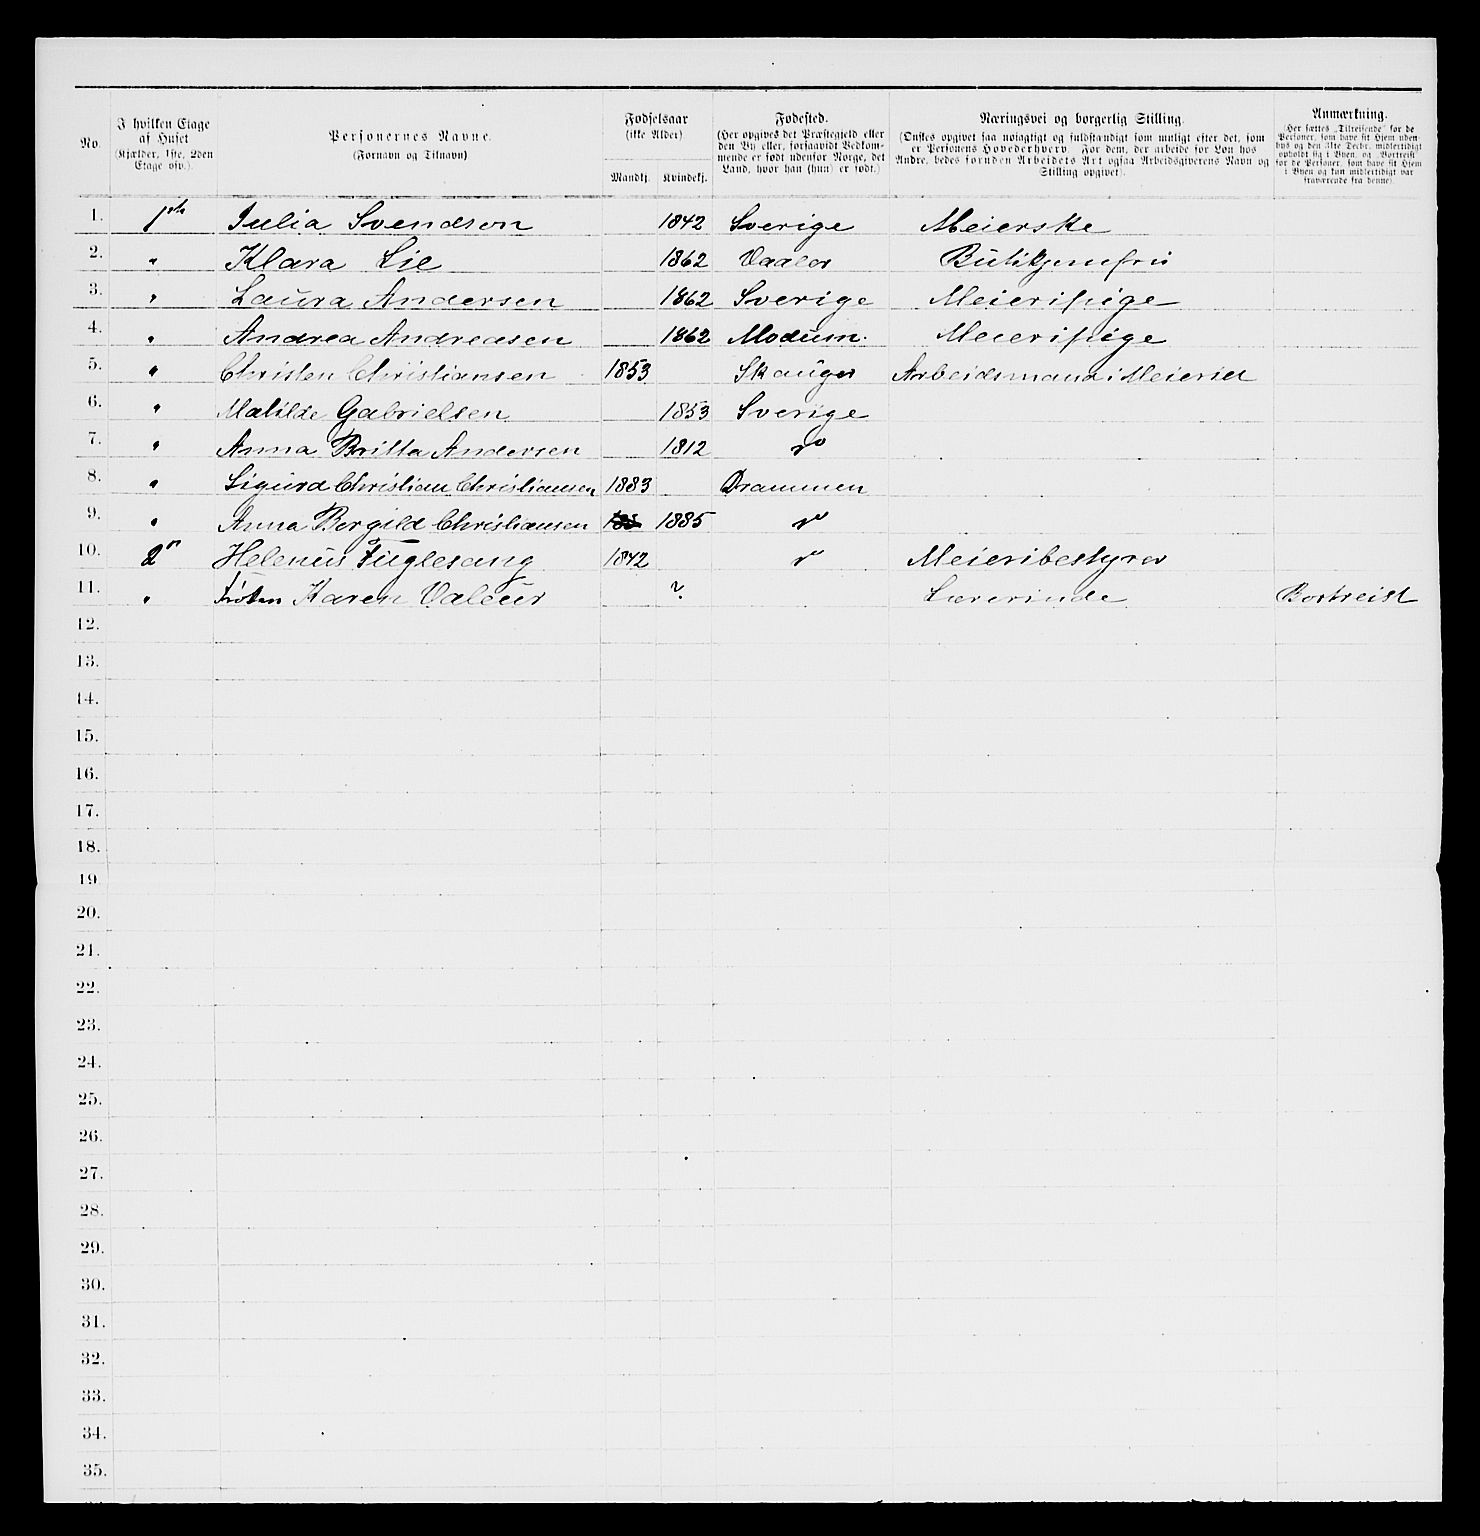 No.
I hvilken Etage
af Huset
(Kjælder, 1ste, 2den
Etage osv.).
Personernes Navne.
(Fornavn og Tilnavn)
Fødselsaar
(ikke Alder).
Mandkj. Kvindekj.
Fødested.
(Her opgives det Præstegjeld eller
den By eller, forsaavidt Vedkom-
mende er født udenfor Norge, det
Land, hvor han (hun) er født.)
Næringsvei og borgerlig Stilling.
(Ønskes opgivet saa nøiagtigt og fuldstændigt som muligt efter det, som
er Personens Hovederhverv. For dem, der arbeide for Løn hos
Andre, bedes foruden Arbeidets Art ogsaa Arbeidsgiverens Navn og
Stilling opgivet).
Anmærkning.
(Her sættes „Tilreisende" for de
Personer, som have sit Hjem uden-
bys og den 31te Decbr. midlertidigt
opholdt sig i Byen, og „Bortreist"
for de Personer, som have sit Hjem
i Byen og kun midlertidigt var
fraværende fra denne).
1. 1ste Julia Svendsen 1842 Sverige Meierske
2. " Klara Lie 1862 Vaaler Butikjomfru
3. " Laura Andersen 1862 Sverige Meieripige
4. " Andrea Andreasen 1862 Modum. Meieripige
5. " Christen Christiansen 1853 Skauger Arbeidsmand i Meieriet
6. " Matilde Gabrielsen 1853 Sverige
7. " Anna Britta Andersen 1812 do
8. " Sigurd Christian Christiansen 1883 Drammen
9. " Anna Borgild Christiansen 1885 do
10. 2n Helenus Fuglesang 1842 do Meieribestyrer
11. " Frøken Karen Valeur ? Lærerinde Bortreist
12.
13.
14.
15.
16.
17.
18.
19.
20.
21.
22.
23.
24.
25.
26.
27.
28.
29.
30.
31.
32.
33.
34.
35.